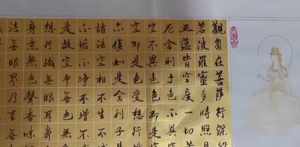 觀自在菩薩行深
若波羅蜜多時照見
五蘊皆空度一切苦
厄舍利子色不異
空不異色色即是
空即是色受想行
亦復如是舍利子是
諸法空相不生不
不垢不淨不增不
是故空中無色無
想行識無眼耳
身意無色聲香味
法無眼界乃至無